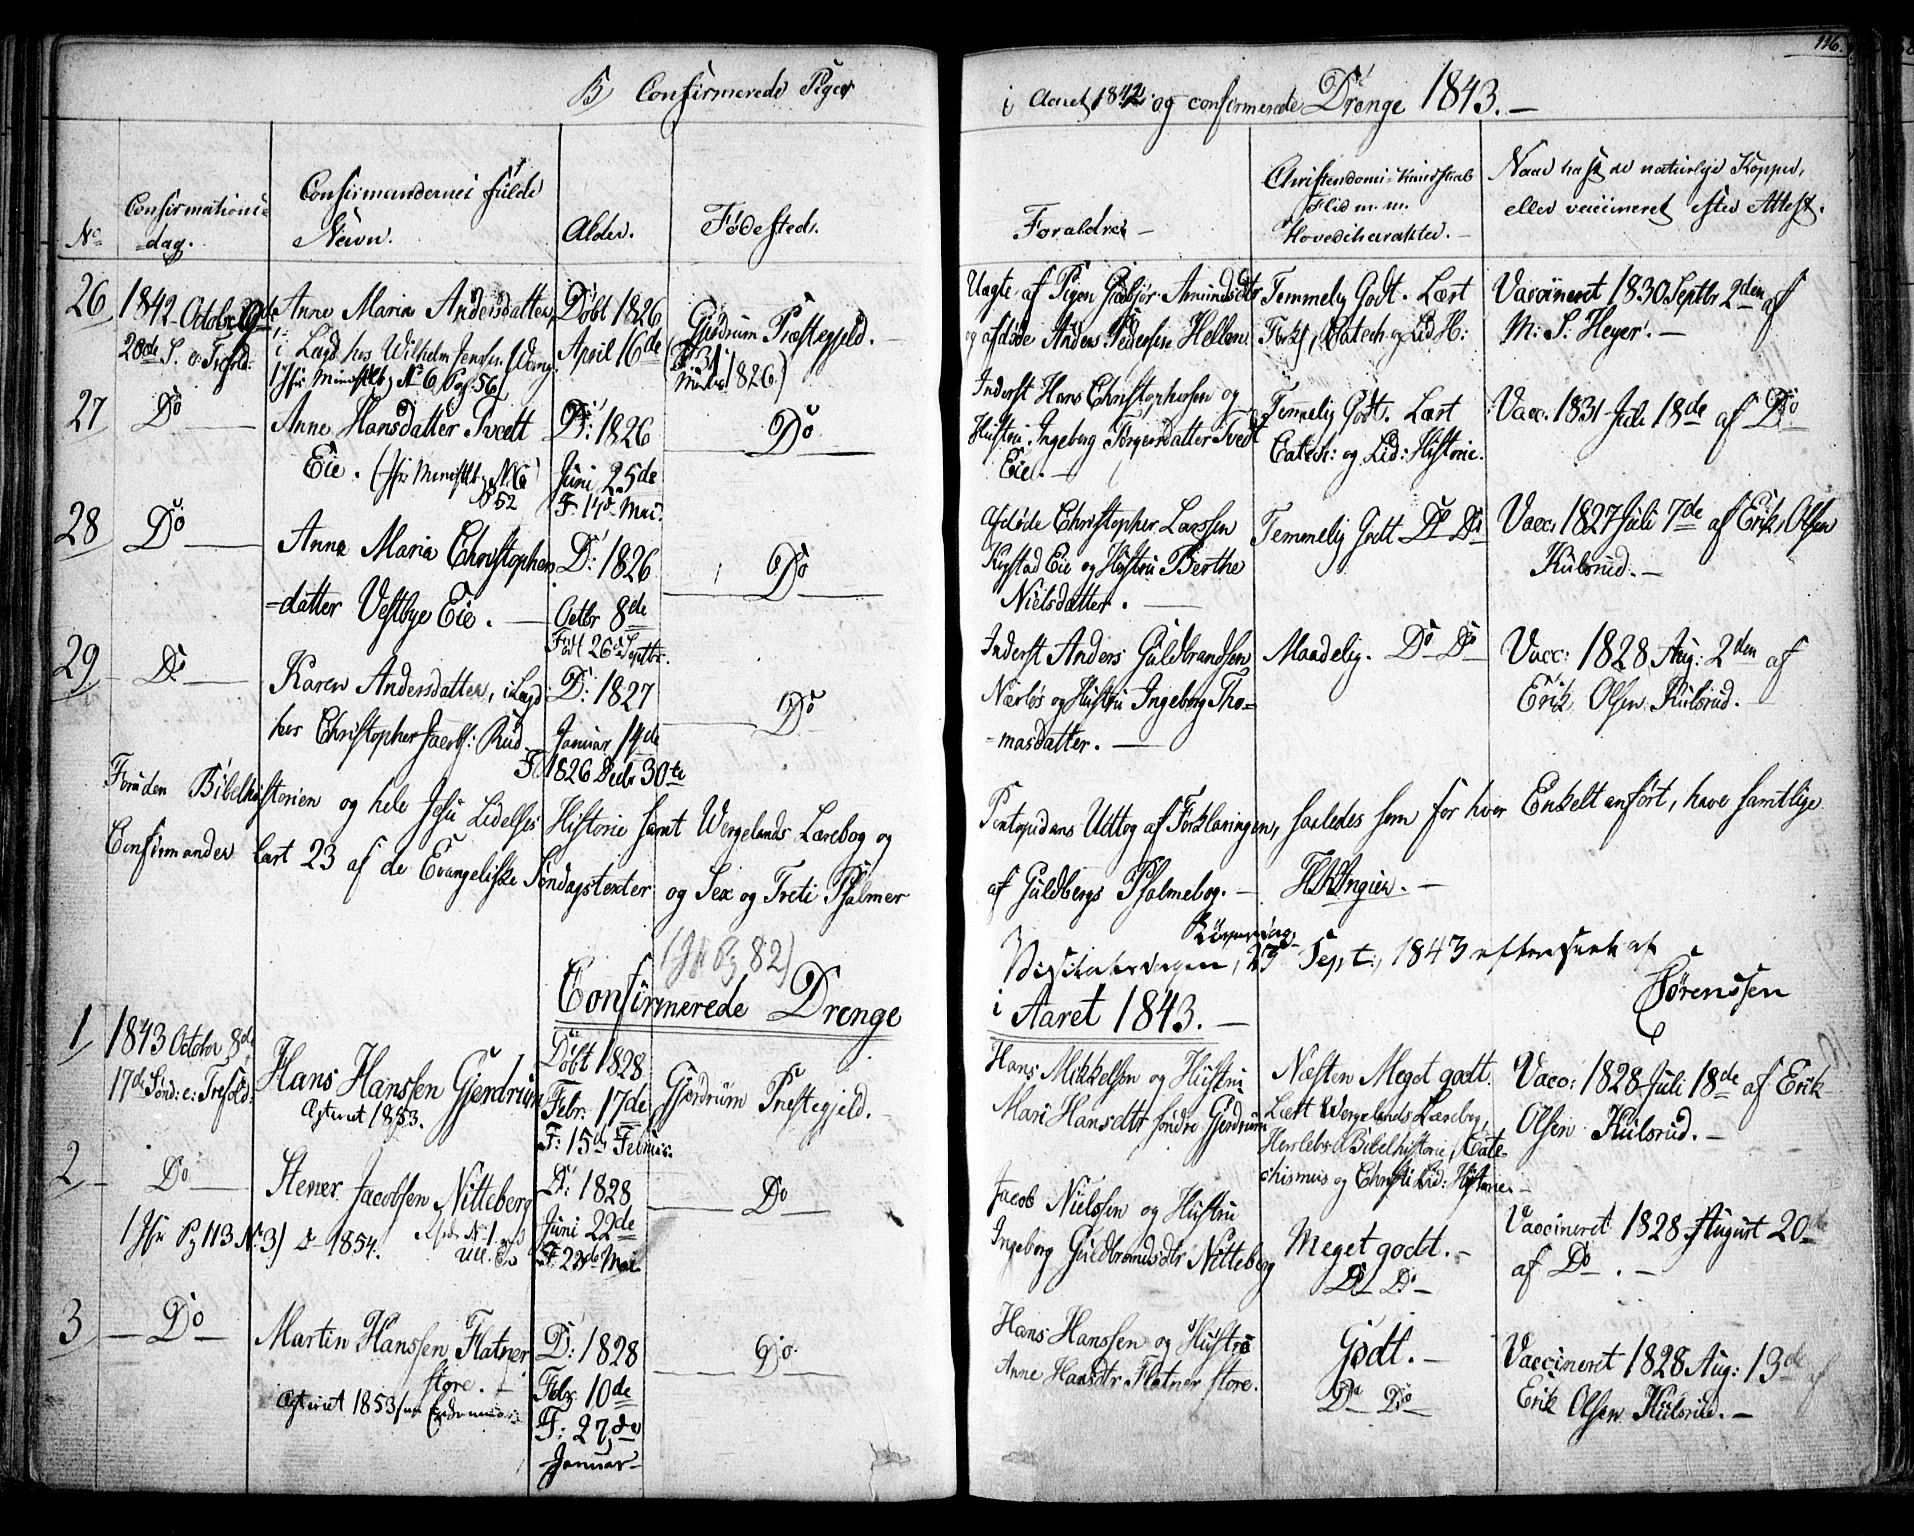 116.
B, Confirmerede Piger
i Aaret 1842 og confirmerede Drenge 1843. –
No
Confirmations-
dag.
Confirmandernes fulde
Navn.
Alder.
Fødested.
Forældre –
Christendoms-Kundskab
Flid m. m.
Hovedcharakter. –
Naar havt de naturlige Kopper,
eller vaccineret efter Attest.
26
1842 October
28de S. e. Trefold:
Anne Maria Andersdatter,
i Lægd hos Wilhelm Jensen Wang
No 6, Pag. 56)
Døbt 1826
April 16de
Gjerdrum Præstegjeld. –
1826)
Uægte, af Pigen Amundsdtr
og afdøde Anders Pedersen Hellen
Temmelig Godt. Læst
Fork:, Catech. og Lid H:
Vaccineret 1830 Septbr 2den af
M. S. Heyer. –
27
Do –
Anne Hansdatter Tvedt
Eie. (Jfr Ministlb, N. 6
P 52
D: 1826
Juni 25de
F. 14de Mai.
Do
Inderst Hans Christophersen og
Hustru Ingeborg Jørgensdatter Tvedt
Eie. –
Temmelig Godt. Læst
Catech: og Lid: Historie.
Vacc. 1831 Juli 18de af Do
28
Do –
Anne Maria Christophers
=datter Vestbye Eie. –
D: 1826
Octbr 8de
Født 26de Septbr.
Do
Afdøde Christopher Larssen
Kugstad Eie og Hustru Berthe
Nielsdatter. –
Temmelig Godt Do Do
Vacc: 1827 Juli 7de af Erik Olsen
Kulsrud. –
29
Do –
Karen Andersdatter, i Lægd
hos Christopher Jacobs: Rud
D: 1827
Januar 14de
F. 1826 Decbr 30te
Do
Inderst Anders Guldbrandsen
Nærløs og Hustru Ingeborg Tho=
=masdatter. –
Maadelig. Do Do
Vacc: 1828 Aug: 2den af
Erik Olsen Kulsrud.
Foruden Bibelhistorien og hele Jesu Lidelses Historie samt Wergelands Lærebog og
Pontopidans Udtog af Forklaringen, saaledes som for hver Enkelt anført, have samtlige
Confirmander lært 23 af de Evangeliske Søndagstexter og Sex og Treti Psalmer
af Guldbergs Psalmebog. – H. Angien. –
(Jfr Pg 82)
Visitatsdagen, 23 Sept., 1843 efterseet af
Sørenssen
Confirmerede Drenge
i Aaret 1843. –
1
1843 October 8de
17de Sønd: e: Trefold:
Hans Hanssen Gjerdrum
Ægteviet 1853.
Døbt 1828
Febr: 17de
F: 15de Februar.
Gjerdrum Prestegjeld. –
Hans Mikkelsen og Hustru
Mari Hansdtr søndre Gjerdrum
Næsten Meget godt.
Læst Wergelands Lærebog,
Herslebs Bibelhistorie, Cate-
chismus og Christi Lid: Historie –
Vacc: 1828 Juli 18de af Erik
Olsen Kulsrud. –
2
Do –
Stener Jacobsen Nitteberg
(Jfr Pg 113 No 3) 1854.
D: 1828
Juni 22de
F. 22de Mai
Do
Jacob Nielssen og Hustru
Ingeborg Guldbrandsdtr Nitteberg
Meget godt. –
Do Do
Vaccineret 1828 August 20de
af Do. –
3
– Do –
Martin Hanssen Flatner
store. –
Ægteviet 1853
D: 1828
Febr 10de
F: 27de
Januar –
Do.
Hans Hanssen og Hustru
Anne Hansdtr Flatner store.
Godt. –
Do Do
Vaccineret 1828 Aug: 13de af
Erik Olsen Kulsrud. –